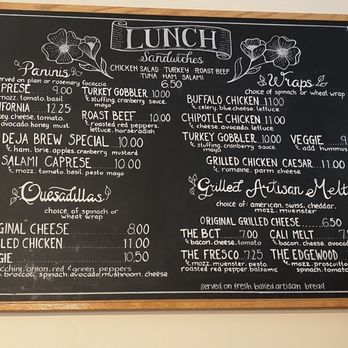 LUNCH
Sandwiches
CHICKEN SALAD TURKEY ROAST BEEF
TUNA HAM SALAMI
6.50
Paninis
served on plain or rosemary focaccia
PRESE 9.00
mozz. tomato. basil
IFORNIA 12.25
key cheese, tomato,
avocado. honey must.
TURKEY GOBBLER 10.00
stuffing, cranberry sauce,
mayo
ROAST BEEF 10.00
roasted red peppers,
lettuce, horseradish
DEJA BREW SPECIAL 10.00
ham, brie, apples, cranberry mustard
SALAMI CAPRESE 10.00
mozz. tomato, basil, pesto mayo
Quesadillas
choice of spinach or
wheat wrap
GINAL CHEESE 8.00
LLED CHICKEN 11.00
GIE 10.50
zucchini, onion, red & green peppers
broccoli, spinach, avocado, mushroom, cheese
Wraps
choice of spinach or wheat wrap
BUFFALO CHICKEN 11.00
celery, blue cheese, lettuce
CHIPOTLE CHICKEN 11.00
cheese, avocado, lettuce
TURKEY GOBBLER 10.00
stuffing, cranberry sauce,
mayo
VEGGIE 9
add hummus
GRILLED CHICKEN CAESAR 11.00
romaine, parm.
Grilled Artisan Melt
choice of: american, swiss, cheddar,
mozz, muenster
ORIGINAL GRILLED CHEESE 6.50
THE BCT 7.00
bacon, cheese, tomato
CALI MELT 7.
bacon, cheese, avocado
THE FRESCO 7.25
mozz. muenster, pesto,
roasted red pepper, balsamic
THE EDGEWOOD
mozz, prosciutto,
spinach, tomato
served on fresh baked artisan bread